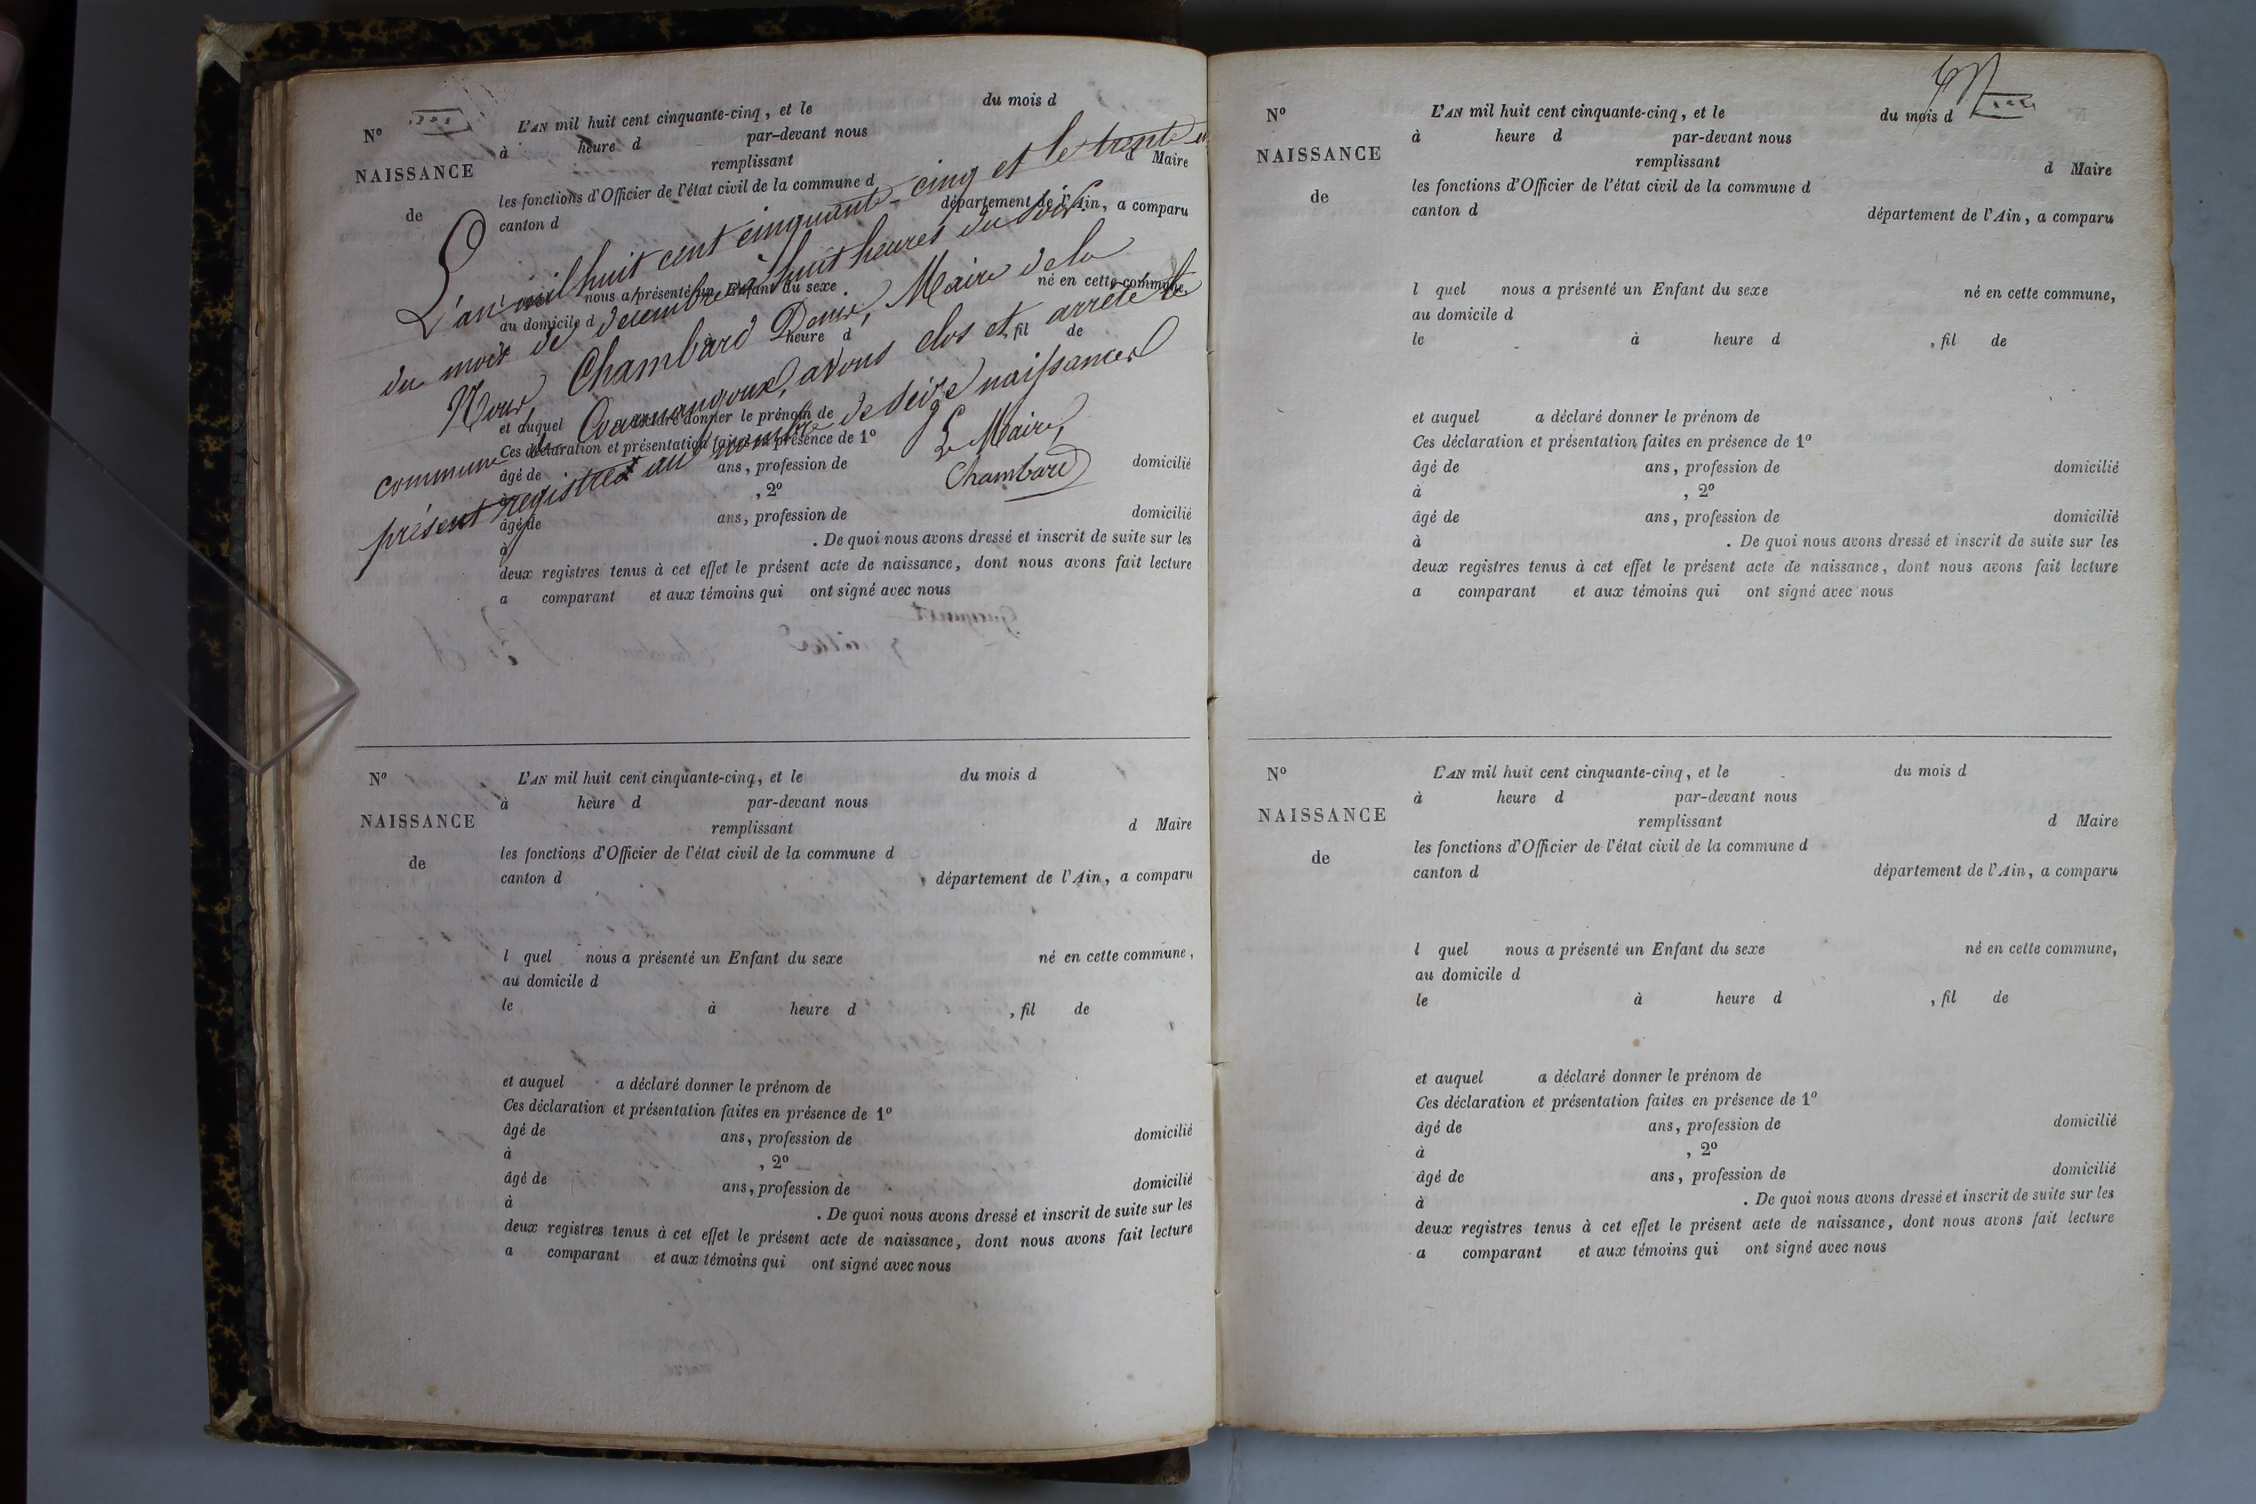 Nº
L'AN mil huit cent cinquante-cinq, et le du mois d
à heure d par-devant nous
NAISSANCE
remplissant d Maire
les fonctions d'Officier de l'état civil de la commune d
de
canton d département de l'Ain, a comparu
L'an mil huit cent cinquante-cinq et le trente et
du mois de décembre à huit heures du soir.
Nous Chambard Denis, Maire de la
commune de avons clos et arrêté le
présent registre au nombre de seize naissances
Le Maire,
Chambard
nous a présenté un Enfant du sexe né en cette commune,
au domicile d
heure d fil de
et auquel a déclaré donner le prénom de
Ces déclaration et présentation faites en présence de 1º
âgé de ans, profession de domicilié
à , 2º
âgé de ans, profession de domicilié
à . De quoi nous avons dressé et inscrit de suite sur les
deux registres tenus à cet effet le présent acte de naissance, dont nous avons fait lecture
a comparant et aux témoins qui ont signé avec nous
Nº
L'AN mil huit cent cinquante-cinq, et le du mois d
à heure d par-devant nous
NAISSANCE
remplissant d Maire
les fonctions d'Officier de l'état civil de la commune d
de
canton d département de l'Ain, a comparu
l quel nous a présenté un Enfant du sexe né en cette commune,
au domicile d
le à heure d , fil de
et auquel a déclaré donner le prénom de
Ces déclaration et présentation faites en présence de 1º
âgé de ans, profession de domicilié
à , 2º
âgé de ans, profession de domicilié
à . De quoi nous avons dressé et inscrit de suite sur les
deux registres tenus à cet effet le présent acte de naissance, dont nous avons fait lecture
a comparant et aux témoins qui ont signé avec nous
Nº
L'AN mil huit cent cinquante-cinq, et le du mois d
à heure d par-devant nous
NAISSANCE
remplissant d Maire
les fonctions d'Officier de l'état civil de la commune d
de
canton d département de l'Ain, a comparu
l quel nous a présenté un Enfant du sexe né en cette commune,
au domicile d
le à heure d , fil de
et auquel a déclaré donner le prénom de
Ces déclaration et présentation faites en présence de 1º
âgé de ans, profession de domicilié
à , 2º
âgé de ans, profession de domicilié
à . De quoi nous avons dressé et inscrit de suite sur les
deux registres tenus à cet effet le présent acte de naissance, dont nous avons fait lecture
a comparant et aux témoins qui ont signé avec nous
Nº
L'AN mil huit cent cinquante-cinq, et le du mois d
à heure d par-devant nous
NAISSANCE
remplissant d Maire
les fonctions d'Officier de l'état civil de la commune d
de
canton d département de l'Ain, a comparu
l quel nous a présenté un Enfant du sexe né en cette commune,
au domicile d
le à heure d , fil de
et auquel a déclaré donner le prénom de
Ces déclaration et présentation faites en présence de 1º
âgé de ans, profession de domicilié
à , 2º
âgé de ans, profession de domicilié
à . De quoi nous avons dressé et inscrit de suite sur les
deux registres tenus à cet effet le présent acte de naissance, dont nous avons fait lecture
a comparant et aux témoins qui ont signé avec nous